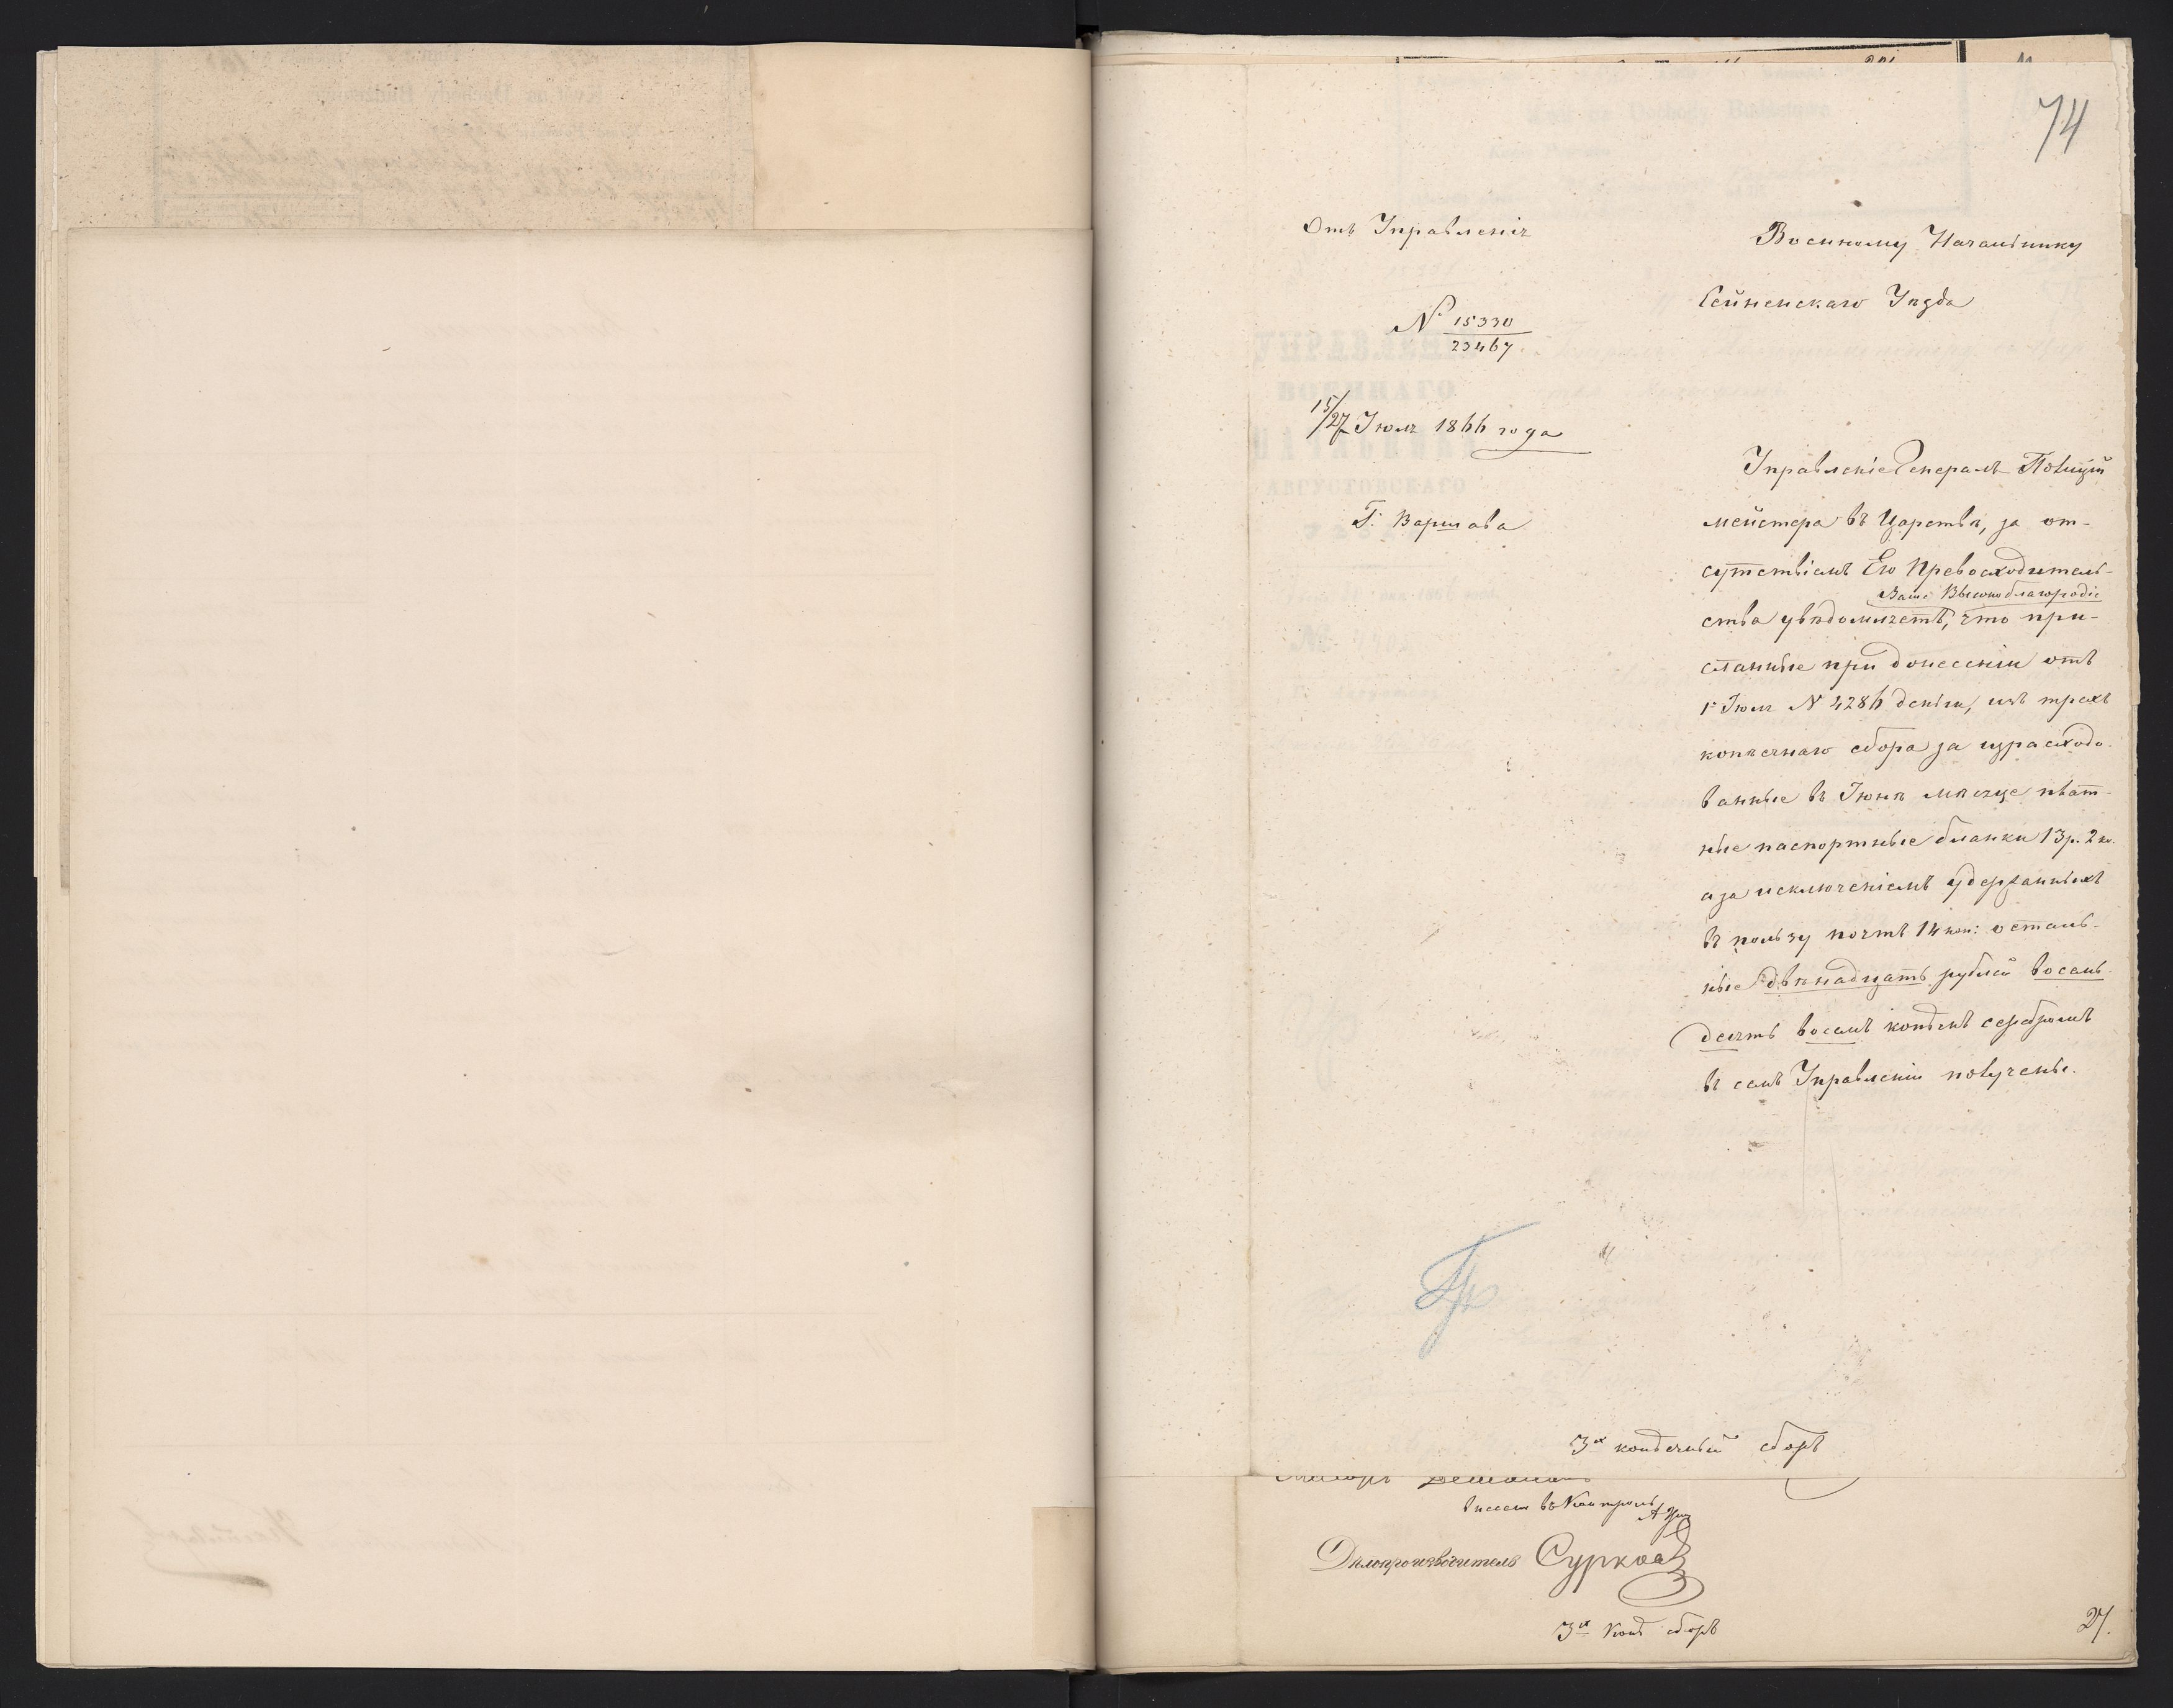 74
Отъ Управленія
№ 15330
23467
15/27 Іюля 1866 года
Г. Варшава
Военному Начальнику
Сейненскаго Уѣзда
Управленіе Генералъ-Полицій
мейстера въ Царствѣ, за от-
сутствіемъ Его Превосходитель-
Ваше Высокоблагородіе
ства увѣдомляетъ, что при-
сланные при донесеніи отъ
1го Іюля № 4286 деньги, изъ трехъ
копѣечнаго сбора за израсходо-
ванные въ Іюнѣ мѣсяце плат-
ные паспортные бланки 13 р. 2 ко.
а за исключеніемъ удержанныхъ
въ пользу почтъ 14 коп: осталь-
ные двѣнадцать рублей восемь-
десятъ восемь копѣекъ серебромъ
въ семъ Управленіи получены.
3х копѣечный сборъ
Маіоръ
внесен въ Контроль
Дѣлопроизводитель Сурковъ
3х Коп сборъ
27.